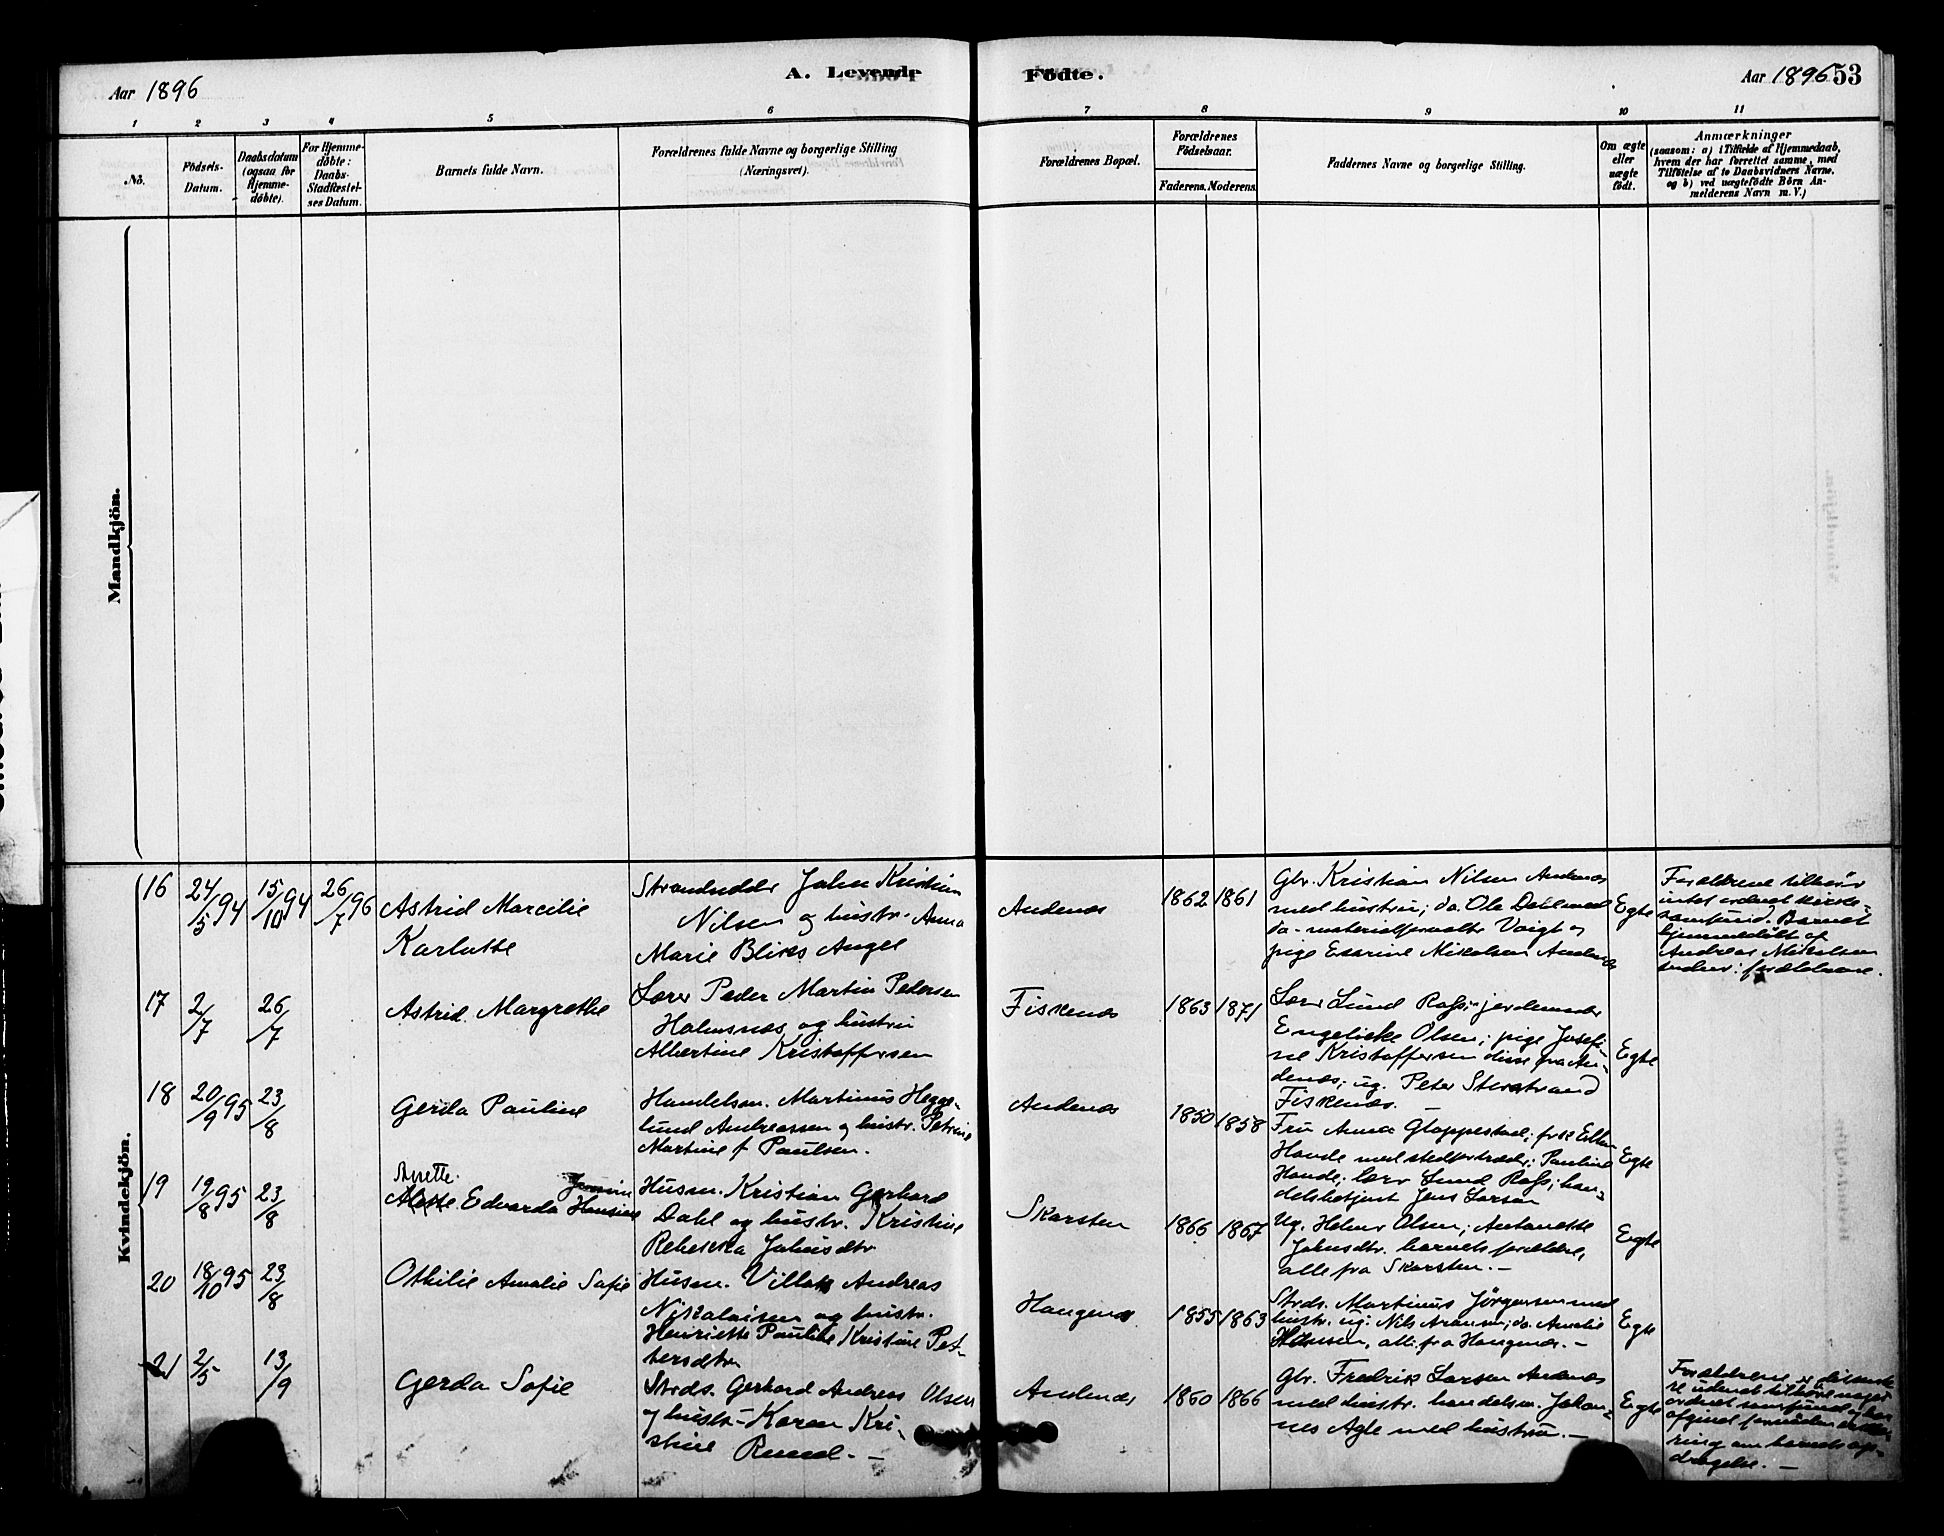 Aar 1896
A. Levende
Födte.
Aar 1896
53
1 2 3 4 5 6 7 8 9 10 11
No.
Födsels-
Datum.
Daabsdatum
(ogsaa för
Hjemme-
döbte).
For Hjemme-
döbte:
Daabs-
Stadfæstel-
ses Datum.
Barnets fulde Navn.
Forældrenes fulde Navne og borgerlige Stilling
(Næringsvei).
Forældrenes Bopæl.
Forældrenes
Födselsaar.
Faderens. Moderens.
Faddernes Navne og borgerlige Stilling.
Om ægte
eller
uægte
födt.
Anmærkninger
(saasom: a) i Tilfælde af Hjemmedaab,
hvem der har forrettet samme, med
Tilföielse af to Daabsvidners Navne,
og b) ved uægtefödte Börn An-
melderens Navn m. V.)
Mandkjön.
Kvindekjön.
16
24/5 94
15/10 94
26/7 96
Astrid Marcilie
Karlotte
Johan Kristian
Nilsen og hustr. Anna
Marie Blix Angel
Andenæs
1862
1861
Gbr. Kristian Nilsen Andenæs
med hustru; do. Ole Dahl med
do. materialforvalter Voigt og
pige Mikalsen Andenæs
Egte
Forældrene tilhører
intet ordnet kirke-
samfund. Barnet
hjemmedöbt af
Andreas Mikalsen
forældrene.
17
2/7
26/7
Astrid Margrethe
Lærer Peder Martin Petersen
Holmsnæs og hustru
Albertine Kristoffersen
Fiskenæs
1863
1871
Lærer Lund Rass; jordemoder
Engelicke Olsen; pige Josefi-
ne Kristoffersen disse fra An-
denæs; ug. Peter
Fiskenæs.
Egte
18
20/9 95
23/8
Gerda Pauline
Handelsm. Martinus Hegge-
lund Andreassen og hustr. Petrine
Martine f. Paulsen.
Andenæs
1850
1858
Fru Anna Gloppestad; frk. Ellen
Hande med stedfortræder; Pauline
Hande; lærer Lund Rass; han-
delsbetjent Jens Larsen
Egte
19
19/8 95
23/8
Edvarda
Husm. Kristian Gerhard
Dahl og hustr. Kristine
Rebekka Johnsdtr
Skarsten
1866
1867
Ug. Helmer Olsen; Antonette
Johnsdtr. barnets forældre,
alle fra Skarsten. –
Egte
20
18/10 95
23/8
Othilie Amalie Sofie
Husm. Villas Andreas
Nikolaisen og hustr.
Henriette Pauline Kristine Pet-
tersdtr
Haugenæs
1855
1863
Strds. Martinus Jörgensen med
hustr. ug. Nils Aronsen; do. Amalie
Hansen, alle fra Haugenæs. –
Egte
21
2/5
13/9
Gerda Sofie
Strds. Gerhard Andreas Olsen
og hustr. – Karen Kri-
stine Ruud. –
Andenæs
1860
1866
Gbr. Fredrik Larsen Andenæs
med hustr. handelsm. Johan-
nes Agle med hustru. –
Egte
Forældrene er dissente-
re uden at tilhöre noget
ordnet samfund og har
afgivet
ring om barnets op-
dragelse. –